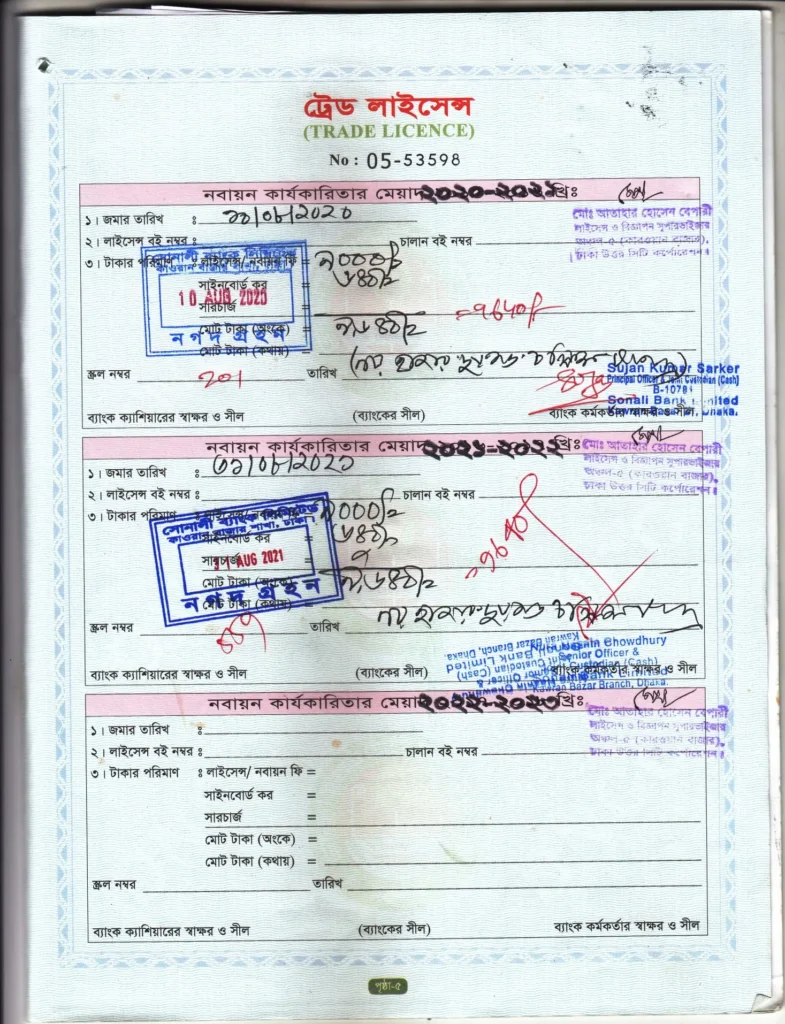 ট্রেড লাইসেন্স
(TRADE LICENCE)
No : 05-53598
নবায়ন কার্যকারিতার মেয়াদ ২০২০-২০২১ খ্রিঃ
মোঃ আতাহার হোসেন বেপারী
লাইসেন্স ও বিজ্ঞাপন সুপারভাইজার
অঞ্চল-৫ (কারওয়ান বাজার),
ঢাকা উত্তর সিটি কর্পোরেশন।
১। জমার তারিখ : ১০/০৮/২০২০
২। লাইসেন্স বই নম্বর : চালান বই নম্বর
৩। টাকার পরিমাণ : লাইসেন্স/ নবায়ন ফি = ৯০০০/=
সাইনবোর্ড কর ৬৪০/=
সারচার্জ
মোট টাকা (অংকে) ৯,৬৪০/= = 9640/-
মোট টাকা (কথায়)
সোনালী ব্যাংক লিমিটেড
কাওরান বাজার শাখা, ঢাকা।
10 AUG 2020
নগদ গ্রহন
স্ক্রল নম্বর 201 তারিখ
Sujan Kumar Sarker
Principal Officer & Joint Custodian (Cash)
B-10781
Sonali Bank Limited
Kawran Bazar Br., Dhaka.
ব্যাংক ক্যাশিয়ারের স্বাক্ষর ও সীল (ব্যাংকের সীল) ব্যাংক কর্মকর্তার স্বাক্ষর ও সীল
নবায়ন কার্যকারিতার মেয়াদ ২০২১-২০২২ খ্রিঃ
মোঃ আতাহার হোসেন বেপারী
লাইসেন্স ও বিজ্ঞাপন সুপারভাইজার
অঞ্চল-৫ (কারওয়ান বাজার),
ঢাকা উত্তর সিটি কর্পোরেশন।
১। জমার তারিখ : ৩১/০৮/২০২১
২। লাইসেন্স বই নম্বর : চালান বই নম্বর
৩। টাকার পরিমাণ : লাইসেন্স/ নবায়ন ফি = ৯০০০/=
সাইনবোর্ড কর ৬৪০/=
সারচার্জ
মোট টাকা (অংকে) ৯,৬৪০/= = 9640/-
মোট টাকা (কথায়)
সোনালী ব্যাংক লিমিটেড
কাওরান বাজার শাখা, ঢাকা।
31 AUG 2021
নগদ গ্রহন
স্ক্রল নম্বর তারিখ
Chowdhury
Senior Officer &
Joint Custodian (Cash)
Sonali Bank Limited
Kawran Bazar Branch, Dhaka.
ব্যাংক ক্যাশিয়ারের স্বাক্ষর ও সীল (ব্যাংকের সীল) ব্যাংক কর্মকর্তার স্বাক্ষর ও সীল
নবায়ন কার্যকারিতার মেয়াদ ২০২২-২০২৩ খ্রিঃ
মোঃ আতাহার হোসেন বেপারী
লাইসেন্স ও বিজ্ঞাপন সুপারভাইজার
অঞ্চল-৫ (কারওয়ান বাজার),
ঢাকা উত্তর সিটি কর্পোরেশন।
১। জমার তারিখ :
২। লাইসেন্স বই নম্বর : চালান বই নম্বর
৩। টাকার পরিমাণ : লাইসেন্স/ নবায়ন ফি =
সাইনবোর্ড কর =
সারচার্জ =
মোট টাকা (অংকে) =
মোট টাকা (কথায়) =
স্ক্রল নম্বর তারিখ
ব্যাংক ক্যাশিয়ারের স্বাক্ষর ও সীল (ব্যাংকের সীল) ব্যাংক কর্মকর্তার স্বাক্ষর ও সীল
পৃষ্ঠা-৫